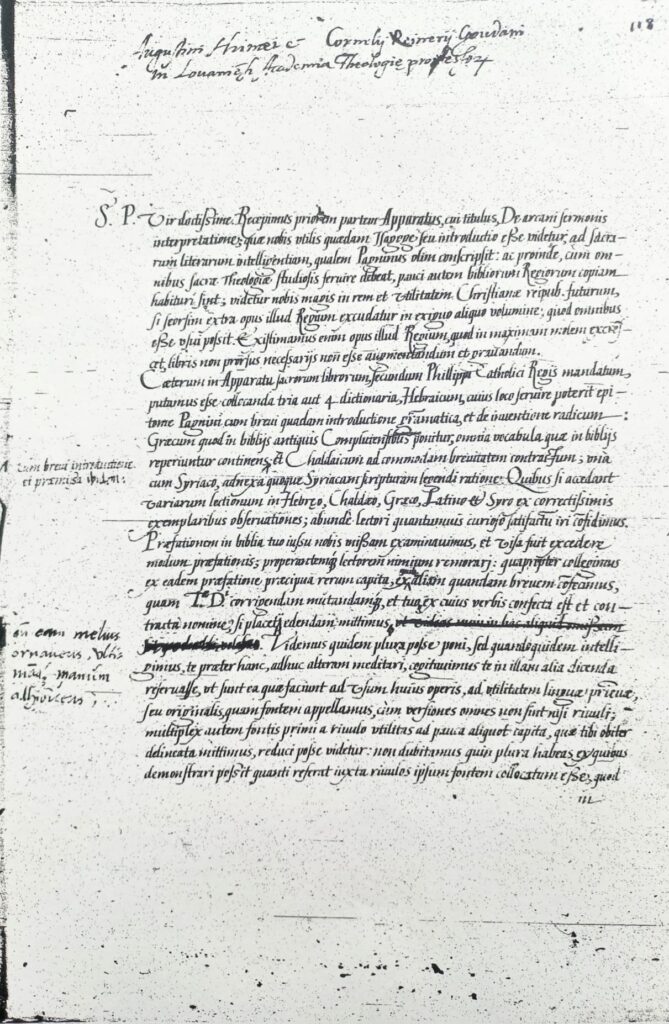 118
Augustini Hunaei Cornelij Reinerij Goudani
in Lovanien̄ Academia Theologię professorū
S. P. Vir doctissime. Recepimus priorem partem Apparatus, cui titulus, De arcani sermonis
interpretatione; quæ nobis vtilis quædam Isagoge seu introductio esse videtur, ad sacra-
rum literarum intelligentiam, qualem Pagninus olim conscripsit: ac proinde, cum om-
nibus sacræ Theologiæ studiosis seruire debeat, pauci autem bibliorum Regiorum copiam
habituri sint; videtur nobis magis in rem et vtilitatem Christianæ reipub. futurum,
si seorsim extra opus illud Regium excudatur in exiguo aliquo volumine; quod omnibus
esse vsui possit. Existimamus enim opus illud Regium, quod in maximam molem excre-
scet, libris non prorsus necessarijs non esse augmentandum et grauandum.
Cæterum in Apparatu sacrorum librorum, secundum Phillippi Catholici Regis mandatum,
putamus esse collocanda tria aut 4 dictionaria, Hebraicum, cuius loco seruire poterit epi-
tome Pagnini cum breui quadam introductione gramatica, et de inuentione radicum:
Græcum quod in biblijs antiquis Complutensibus ponitur, omnia vocabula quæ in biblijs
reperiuntur continens, et Chaldaicum ad commodam breuitatem contractum; vnà
cum breui introductione
et præmissa
cum Syriaco, adnexa quoque Syriacam scripturam legendi ratione: Quibus si accedant
variarum lectionum in Hebręo, Chaldæo, Græco, Latino et Syro ex correctissimis
exemplaribus obseruationes; abundè lectori quantumuis curioso satisfactū iri cōfidimus.
Præfationem in biblia tuo iussu nobis missam examinauimus, et visa fuit excedere
modum præfationis; properantemq́; lectorem nimium remorari: quapropter collegimus
ex eadem præfatione præcipua rerum capita, et aliam quandam breuem cōfecimus,
quam T.ᵉ D.ⁱ corrigendam mutandamq́;, et tuo, ex cuius verbis confecta est et con-
tracta nomine, si placet, edendam mittimus,
Videmus quidem plura posse poni, sed quandoquidem intelli-
eam melius
ornaueris,
manum
gimus, te præter hanc, adhuc alteram meditari, cogitauimus te in illam alia dicenda
reseruasse, vt sunt ea quæ faciunt ad vsum huius operis, ad vtilitatem linguæ primæ,
seu originalis, quam fontem appellamus, cùm versiones omnes non sint nisi riuuli;
multiplex autem fontis primi a riuulo vtilitas ad pauca aliquot capita, quæ tibi obiter
delineata mittimus, reduci posse videtur: non dubitamus quin plura habeas, ex quibus
demonstrari possit quanti referat iuxta riuulos ipsum fontem collocatum esse, quod
in